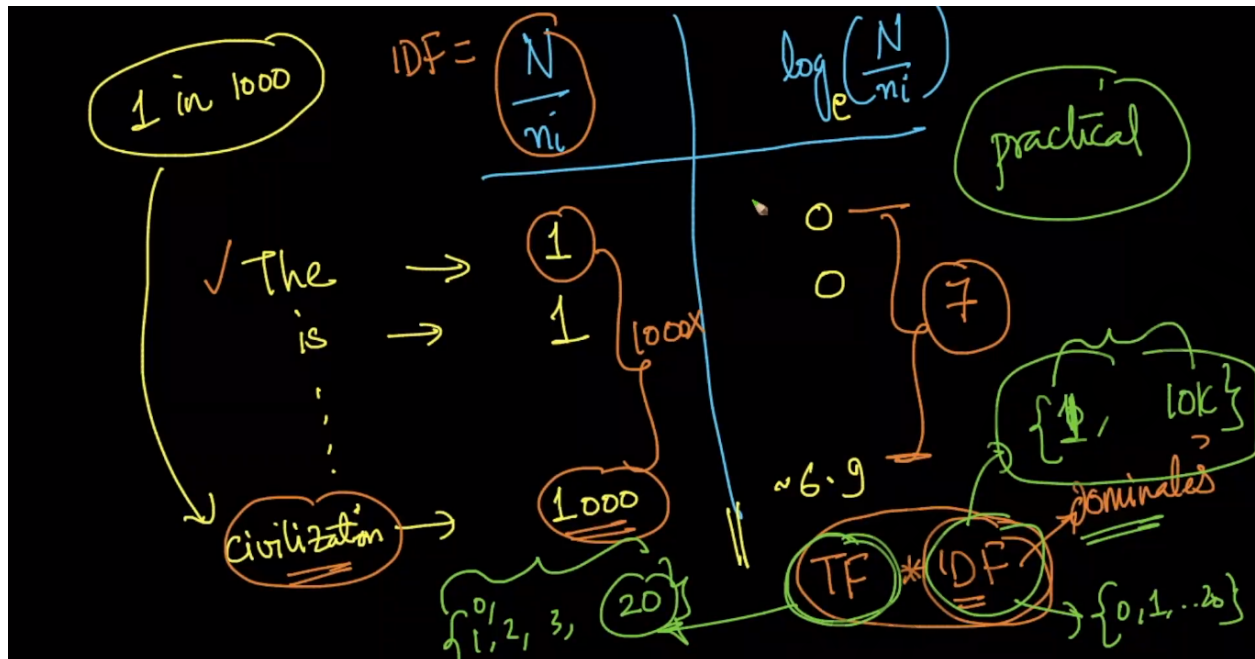 1 in 1000
IDF = N / ni
log e (N / ni)
practical
✓ The → 1
0
is → 1
0
1000x
7
{1, 10K}
civilization → 1000
~6.9
dominates
TF * IDF
{0, 1, 2, 3, 20}
{0, 1, ..20}